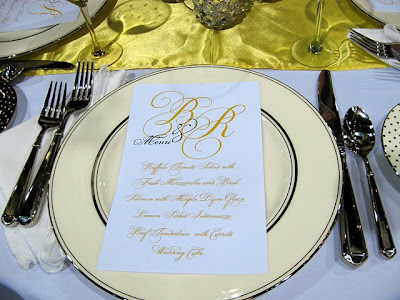 B & R
Menu
Buffalo Tomato Salad with
Fresh Mozzarella and Basil
Salmon with Maple Dijon Glaze
Lemon Sorbet Intermezzo
Beef Tenderloin with Carrots
Wedding Cake